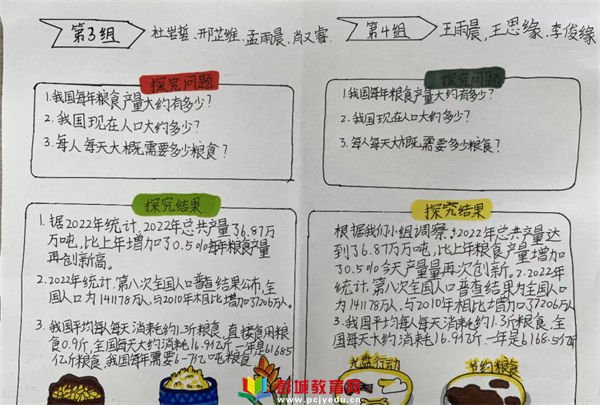 第3组
杜岩哲、邢芷维、孟雨晨、肖又睿
探究问题
1.我国每年粮食产量大约有多少?
2.我国现在人口大约多少?
3.每人每天大概需要多少粮食?
探究结果
1.据2022年统计,2022年总共产量了6.87万
万吨,比上年增加了0.5%每年粮食产量
再创新高。
2.2022年统计,第八次全国人口普查结果公布,全
国人口为141178万人,与2010年相比增加37206万人。
3.我国平均每人每天消耗约1.3斤粮食,直接食用粮
食0.9斤,全国每天大约消耗16.9亿斤,一年是61685
亿斤粮食,我国每年需要6-7亿吨粮食
第4组
王雨晨,王思缘,李俊缘
探究问题
1.我国每年粮食产量大约有多少?
2.我国现在人口大约多少?
3.每人每天大概需要多少粮食?
探究结果
根据我们小组调察,2022年总共产量达
到了6.87万万吨,比上年粮食产量增加
了0.5%今天产量量再次创新。2.2022年
统计,第八次全国人口普查结果为全国人
口为141178万人,与2010年相比增加了37206万人。
3.我国平均每人每天消耗约1.3斤粮食,全
国每天大约消耗16.9亿斤,一年是6168.5亿斤
光盘行动
节约粮食
彭城教育网
www.pcjyedu.cn